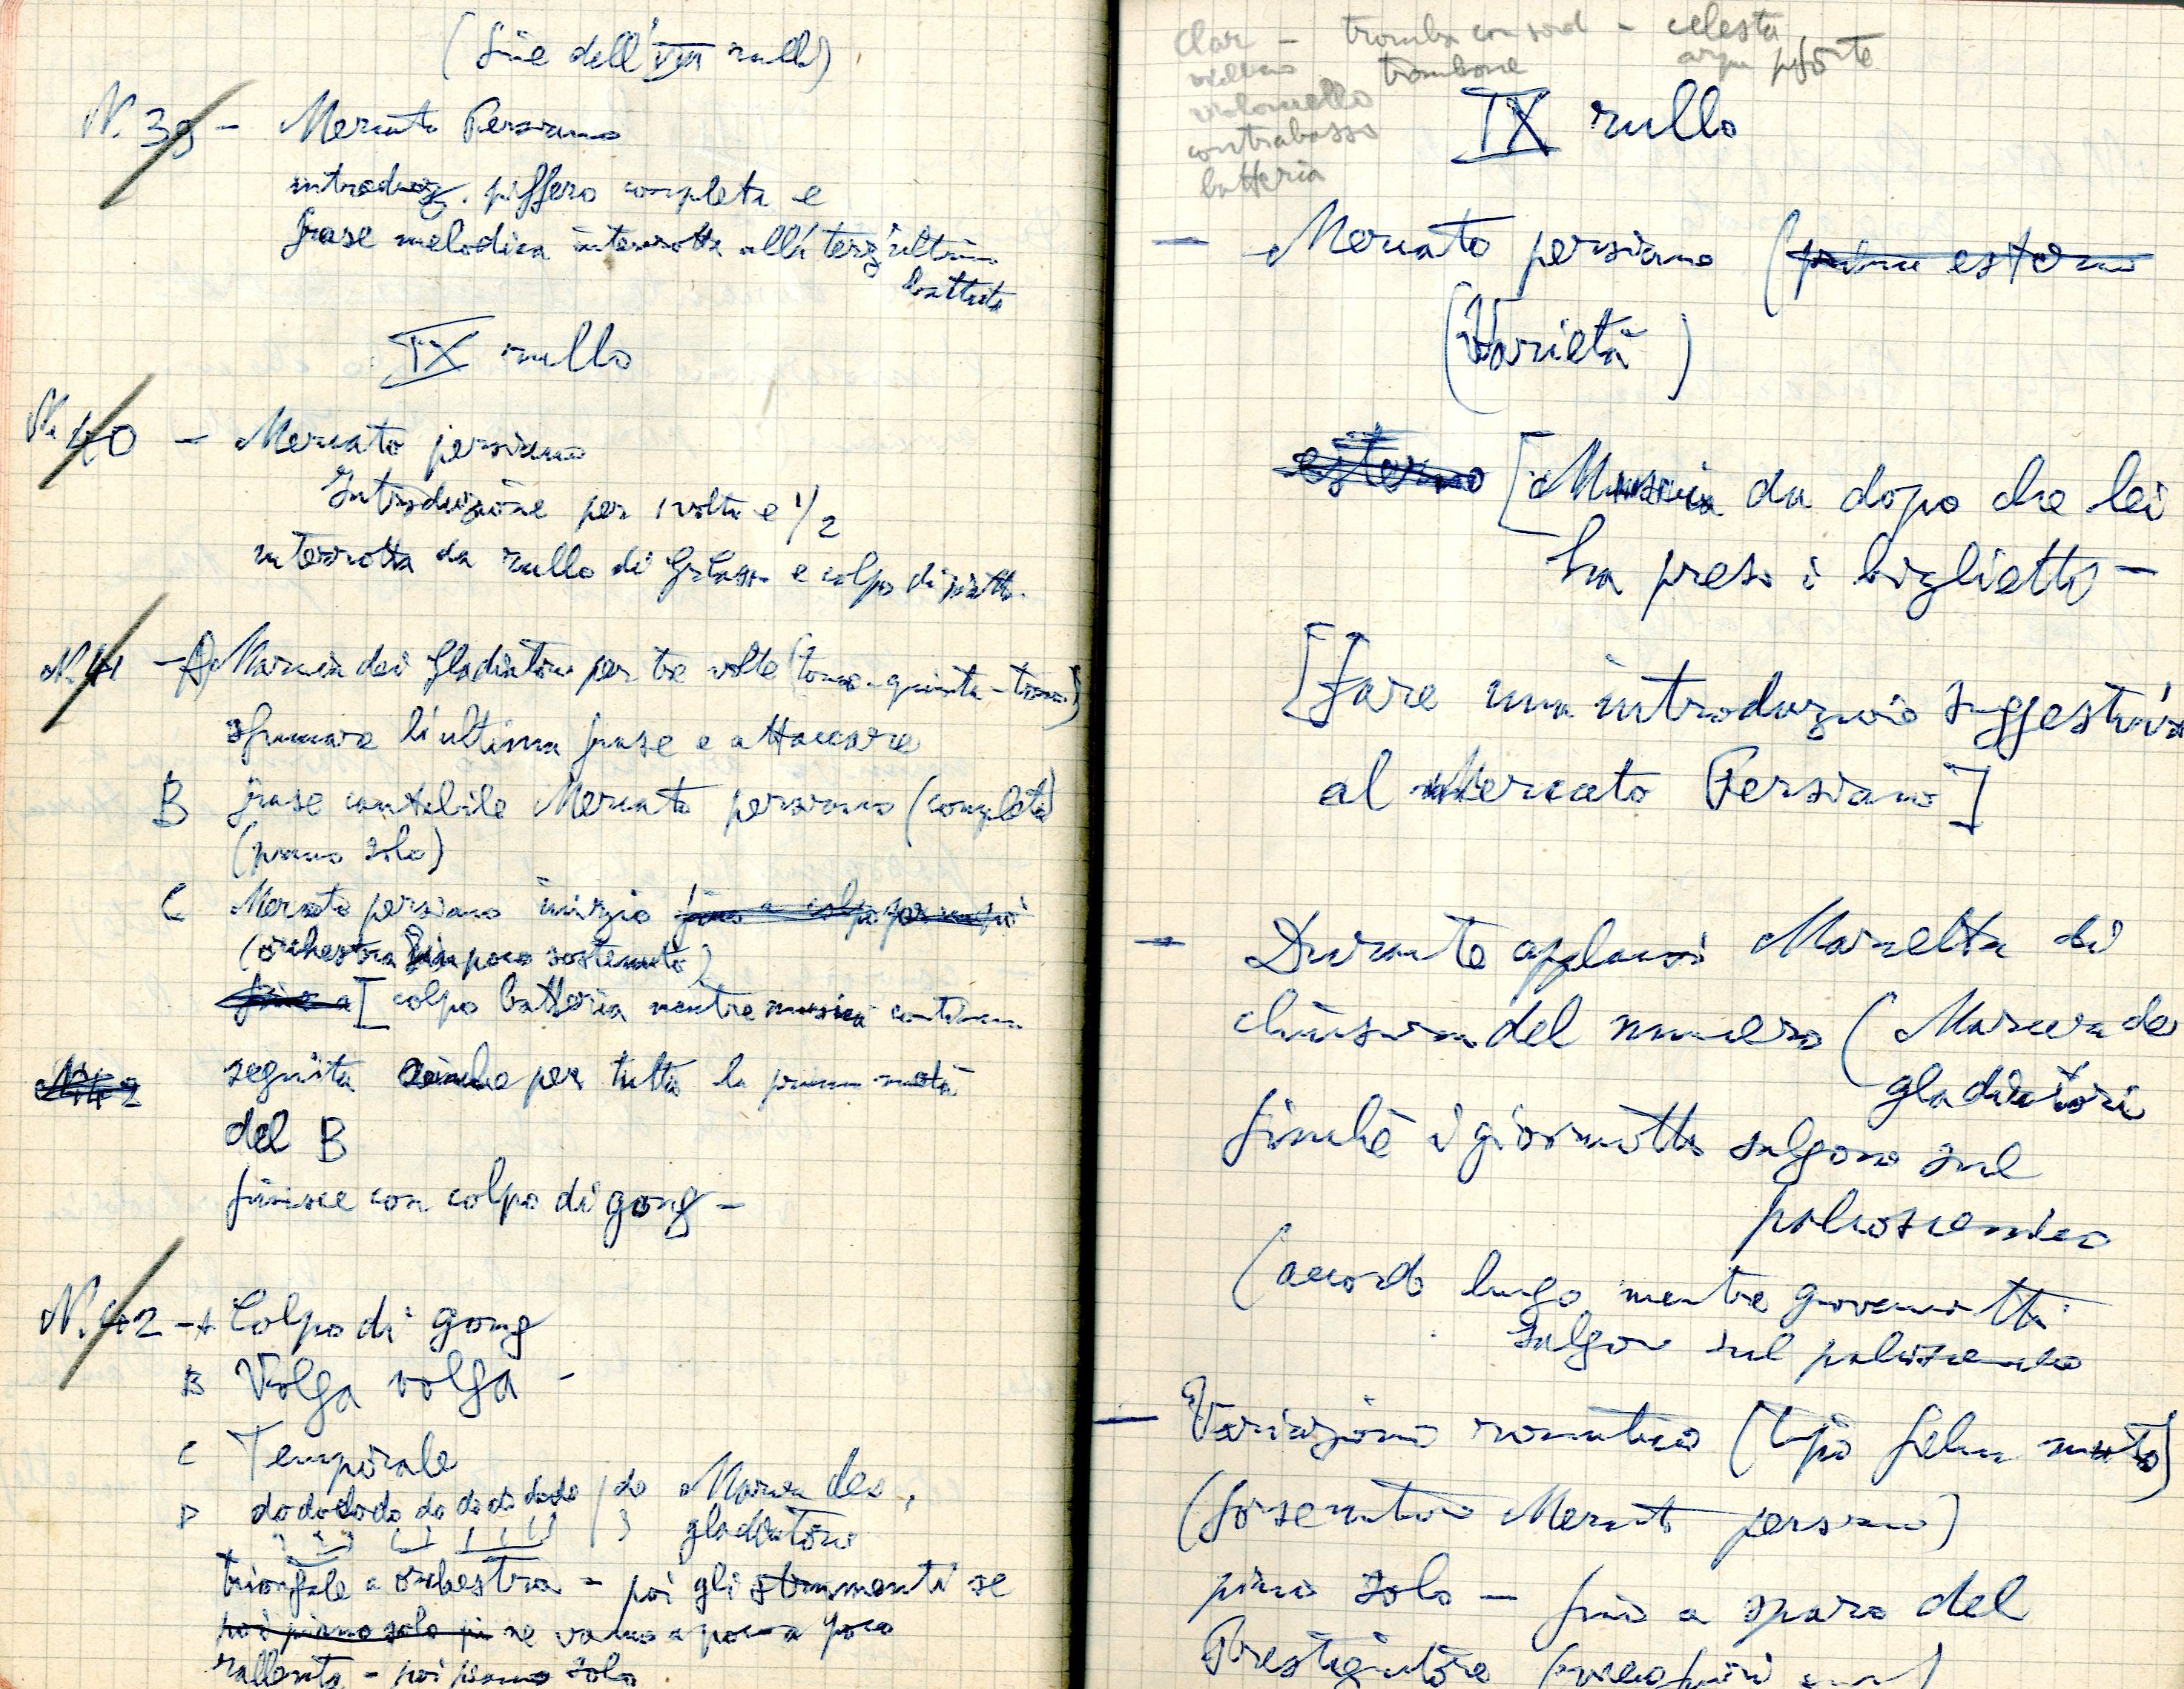 (fine dell'VIII rullo)
N. 39 - Mercato Persiano
introduz. piffero completa e
frase melodica interrotta alla terz'ultima
battuta
IX rullo
N. 40 - Mercato persiano
Introduzione per 1 volta e 1/2
interrotta da rullo di e colpo di piatti.
N. 41 - A Marcia dei Gladiatori per tre volte (tono-quinta-tono)
sfumare l'ultima frase e attaccare
B frase cantabile Mercato persiano (completa)
(piano solo)
C Mercato persiano inizio fino a colpo
(orchestra un poco sostenuto)
fino a [colpo batteria mentre musica continua
N 42 seguita anche per tutta la prima metà
del B
finisce con colpo di gong -
N. 42 - A Colpo di gong
B Volga volga -
C Temporale
D do do do do do do do do do / do Marcia dei
3 gladiatori
trionfale a orchestra - poi gli strumenti se
poi piano solo se vanno a poco a poco
rallenta - poi piano solo
Clar - tromba con sord - celesta
violino trombone arpa pforte
violoncello
contrabasso
batteria
IX rullo
- Mercato persiano (prima esterno
(Varietà)
esterno [Musica da dopo che lei
ha preso i biglietti -
[Fare una introduzione suggestiva
al Mercato Persiano]
- Durante applausi Marcetta di
chiusura del numero (Marcia dei
gladiatori
finché i giovanotti salgono sul
palcoscenico
(accordo lungo mentre giovanotti
salgono sul palcoscenico
- Variazioni romantico (tipo film muto)
(Mercato persiano)
piano solo - fino a sparo del
Prestigiatore